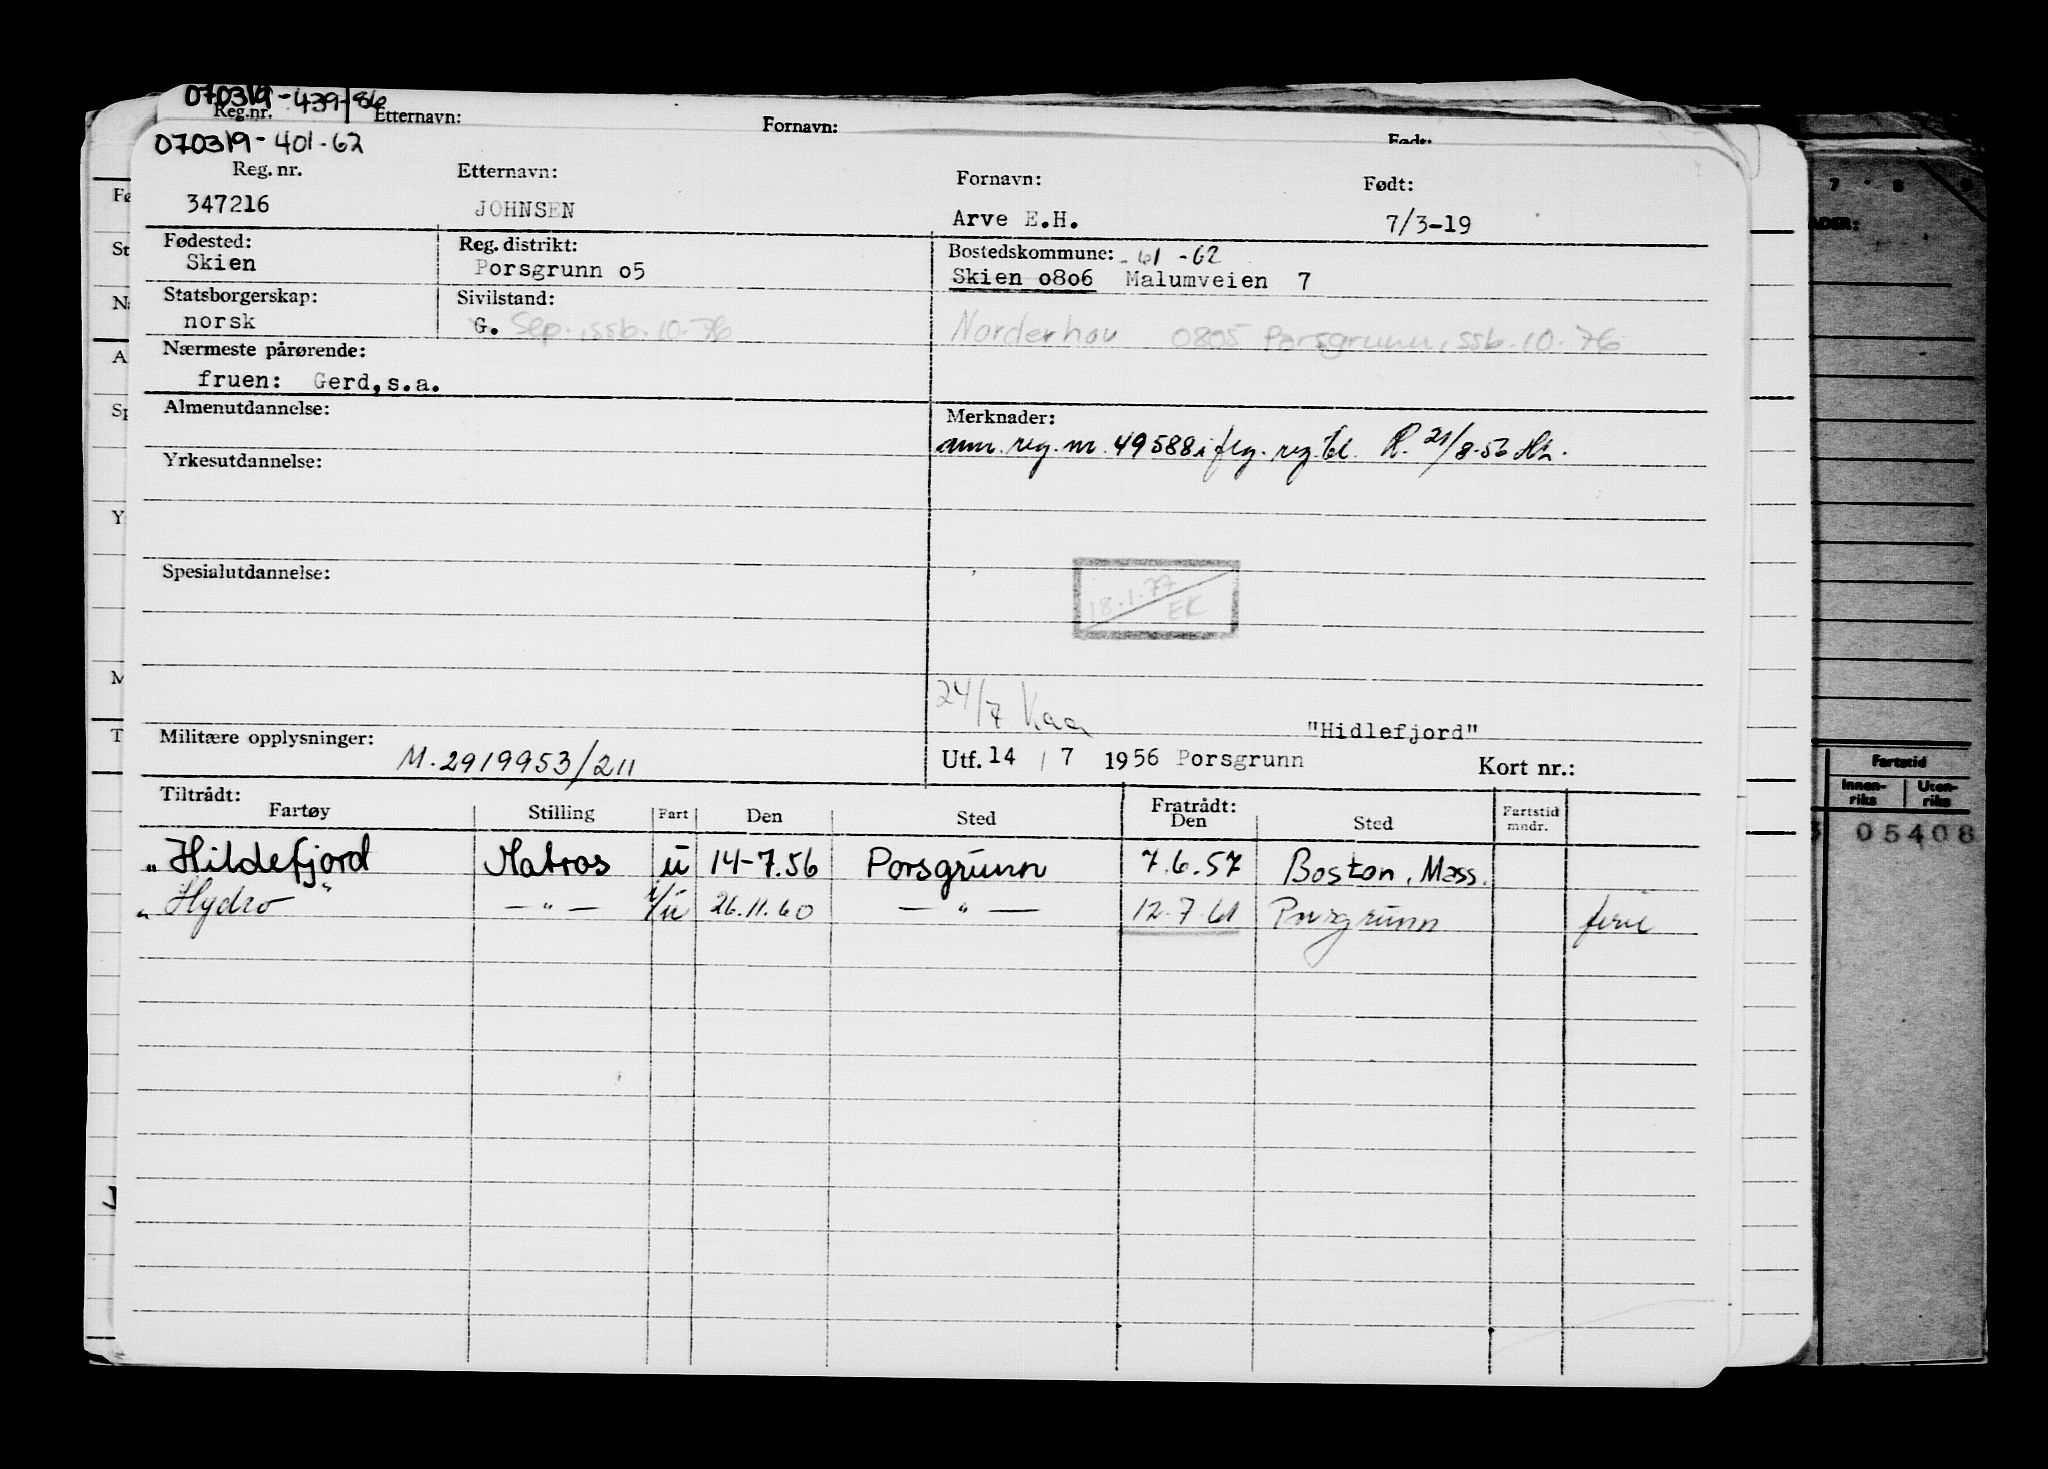 070319-439-86
Reg.nr. Etternavn: Fornavn: Født:
070319-401-62
Reg. nr. Etternavn: Fornavn: Født:
347216 JOHNSEN Arve E.H. 7/3-19
Fødested: Reg. distrikt: Bostedskommune: -61 -62
Skien Porsgrunn o5 Skien o8o6 Malumveien 7
Statsborgerskap: Sivilstand:
norsk G. Sep. ssb. 10-76 Norderhov 0805 Porsgrunn, ssb. 10-76
Nærmeste pårørende:
fruen: Gerd, s.a.
Almenutdannelse: Merknader:
ann. reg. nr. 49588 i flg. reg. til. R. 21/8-56
Yrkesutdannelse:
Spesialutdannelse:
18.1.77
EK
24/7
"Hidlefjord"
Militære opplysninger: M.2919953/211
Utf. 14 / 7 1956 Porsgrunn Kort nr.:
Tiltrådt: Fratrådt:
Fartøy Stilling Fart Den Sted Den Sted Fartstid mndr.
"Hildefjord" Matros u 14-7.56 Porsgrunn 7.6.57 Boston, Mass.
"Hydro — " — i/u 26.11.60 — " — 12.7.61 Porsgrunn ferie
Fø
St
A
Sp
Y
M
T
7 8 9
ADER:
Fartstid
Innen-riks Uten-riks
05408